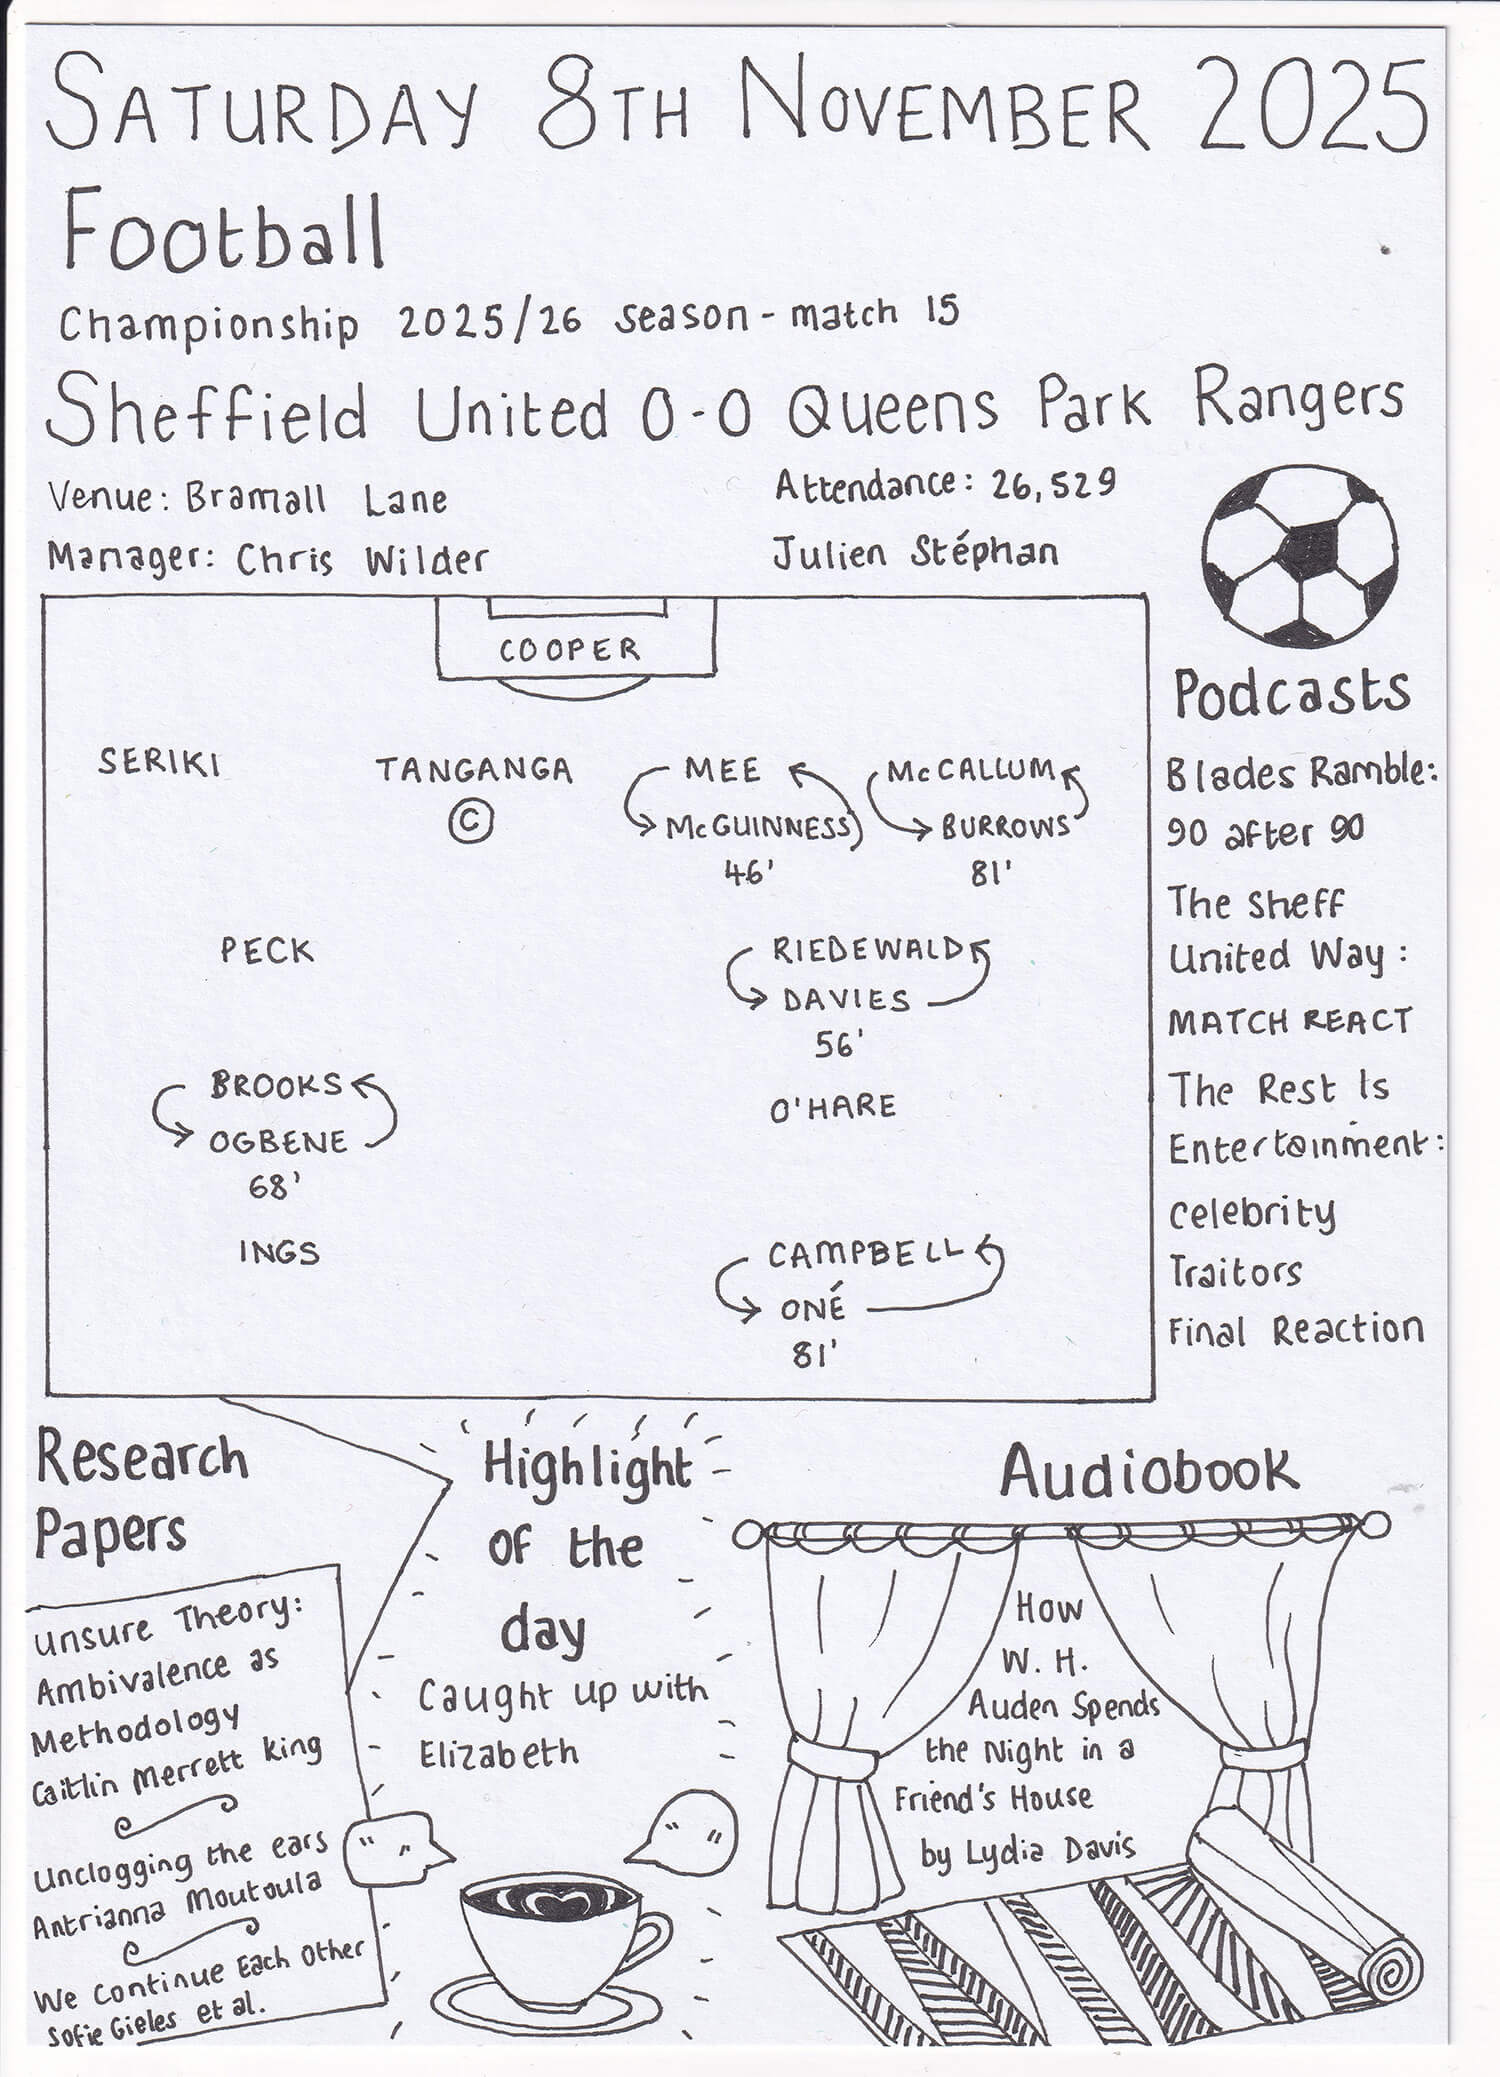 SATURDAY 8TH NOVEMBER 2025
Football
Championship 2025/26 season - match 15
Sheffield United 0-0 Queens Park Rangers
Venue: Bramall Lane
Attendance: 26,529
Manager: Chris Wilder
Julien Stéphan
COOPER
SERIKI
TANGANGA
C
MEE
McGUINNESS
46'
McCALLUM
BURROWS
81'
PECK
RIEDEWALD
DAVIES
56'
BROOKS
OGBENE
68'
O'HARE
INGS
CAMPBELL
ONÉ
81'
Podcasts
Blades Ramble:
90 after 90
The Sheff
United Way:
MATCH REACT
The Rest Is
Entertainment:
Celebrity
Traitors
Final Reaction
Research
Papers
Unsure Theory:
Ambivalence as
Methodology
Caitlin Merrett King
Unclogging the ears
Antrianna Moutoula
We Continue Each Other
Sofie Gieles et al.
Highlight
of the
day
Caught up with
Elizabeth
Audiobook
How
W. H.
Auden Spends
the Night in a
Friend's House
by Lydia Davis